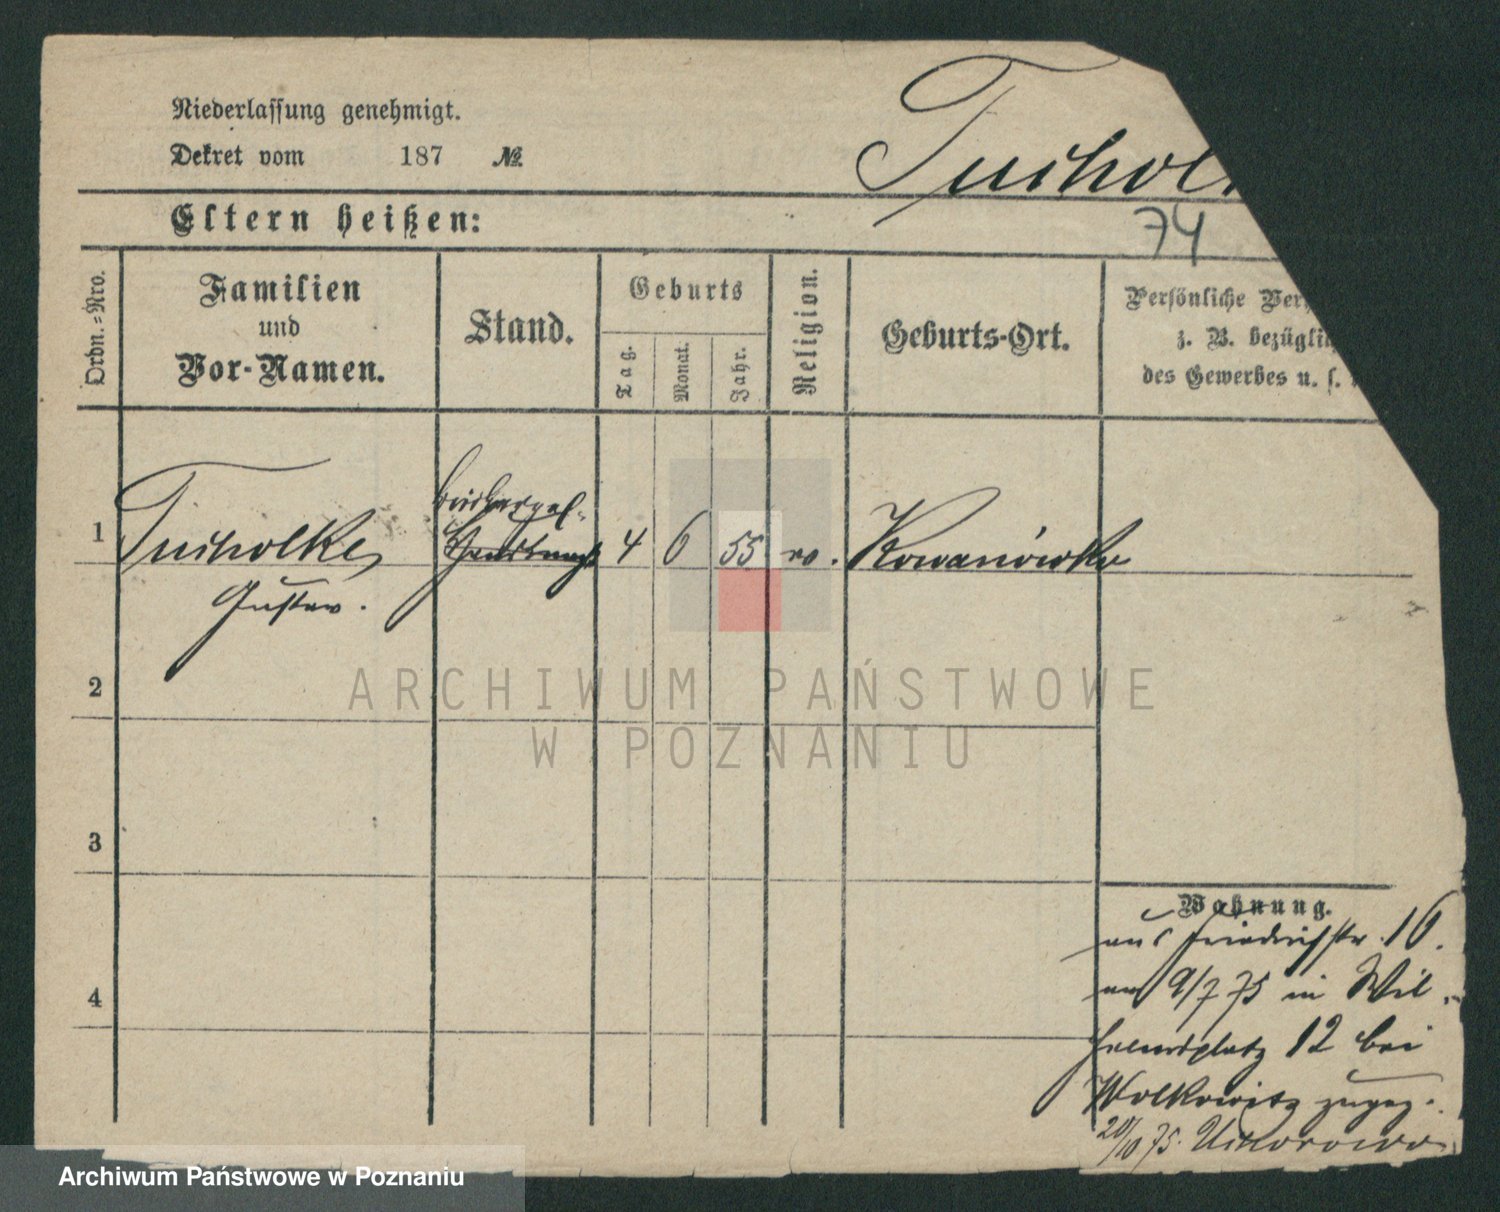 Niederlassung genehmigt.
Dekret vom 187 №
Tuchol
Eltern heißen:
74
Ordn.-Nro.
Familien
und
Vor-Namen.
Stand.
Geburts
Tag.
Monat.
Jahr.
Religion.
Geburts-Ort.
Persönliche Ver
z. B. bezüglich
des Gewerbes u. s.
1
Tucholke
Gustav.
4 6 55 ev. Kowanówko
2
ARCHIWUM PAŃSTWOWE
W POZNANIU
3
Wohnung.
aus Friedrichstr. 16.
am 9/7 75 in Wil-
helmsplatz 12 bei
Wolkowitz zugez.
4
20/10 75.
Archiwum Państwowe w Poznaniu